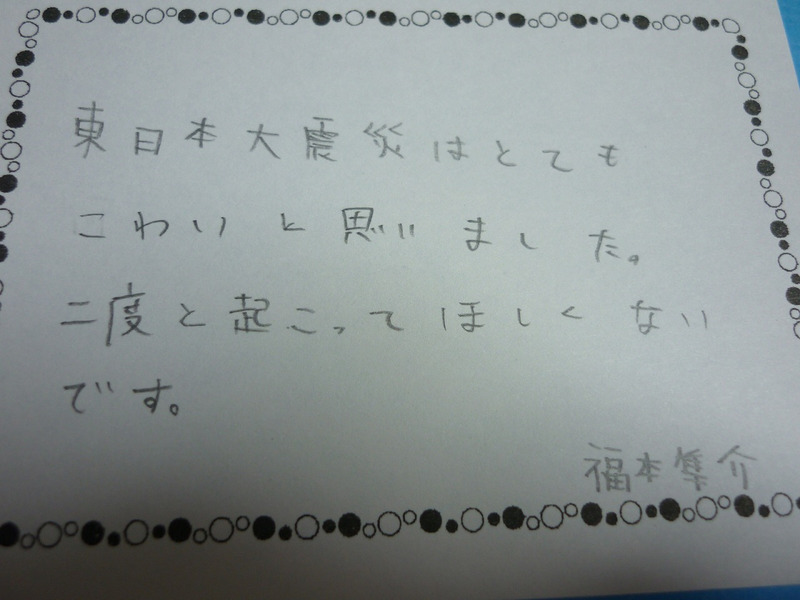 東日本大震災はとても
こわいと思いました。
二度と起こってほしくない
です。
福本隼介